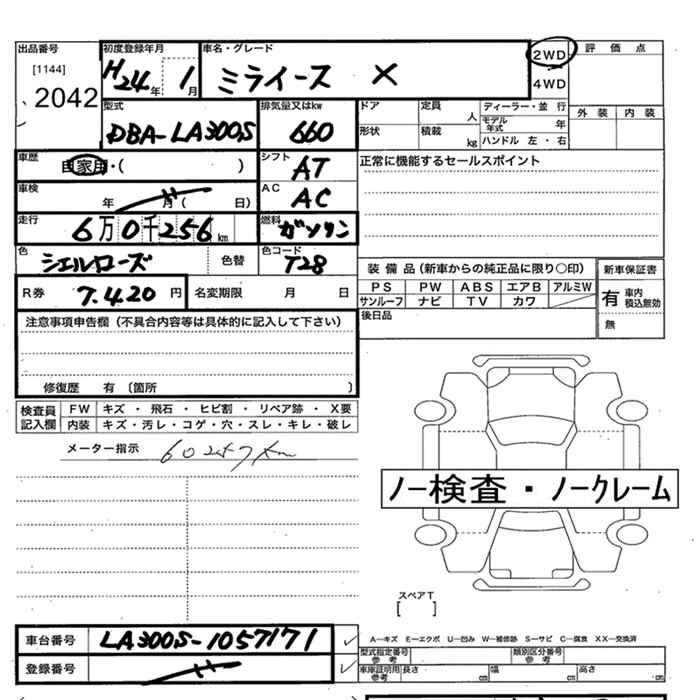 出品番号
[1144]
2042
初度登録年月
H24年 1月
車名・グレード
ミライース X
2WD
4WD
評価点
外装 内装
型式
DBA-LA300S
排気量又はkw
660
ドア
定員 人
形状
積載 kg
ディーラー・並行
モデル年式 年
ハンドル 左・右
車歴
自家用・( )
シフト
AT
正常に機能するセールスポイント
車検
年 月( 日)
AC
AC
走行
6万0千256km
燃料
ガソリン
色
シェルローズ
色替
色コード
T28
装備品(新車からの純正品に限り○印)
PS PW ABS エアB アルミW
サンルーフ ナビ TV カワ
新車保証書
有 車内積込無効
無
R券 7.420円
名変期限 月 日
後日品
注意事項申告欄(不具合内容等は具体的に記入して下さい)
修復歴 有〔箇所 〕
検査員記入欄
FW キズ・飛石・ヒビ割・リペア跡・X要
内装 キズ・汚レ・コゲ・穴・スレ・キレ・破レ
メーター指示 60247km
ノー検査・ノークレーム
スペアT
[ ]
車台番号 LA300S-1057171
登録番号
A―キズ E―エクボ U―凹み W―補修跡 S―サビ C―腐食 XX―交換済
型式指定番号 参考
類別区分番号 参考
車庫証明用 参考
長さ cm 幅 cm 高さ cm